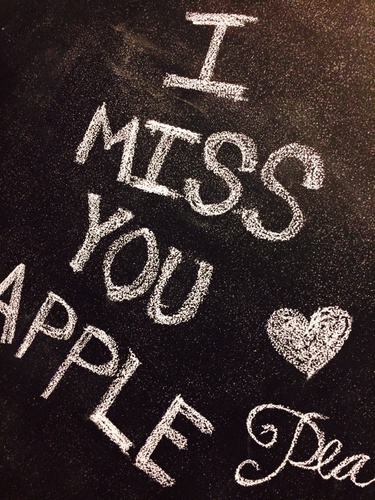 I
MISS
YOU
APPLE
Pea